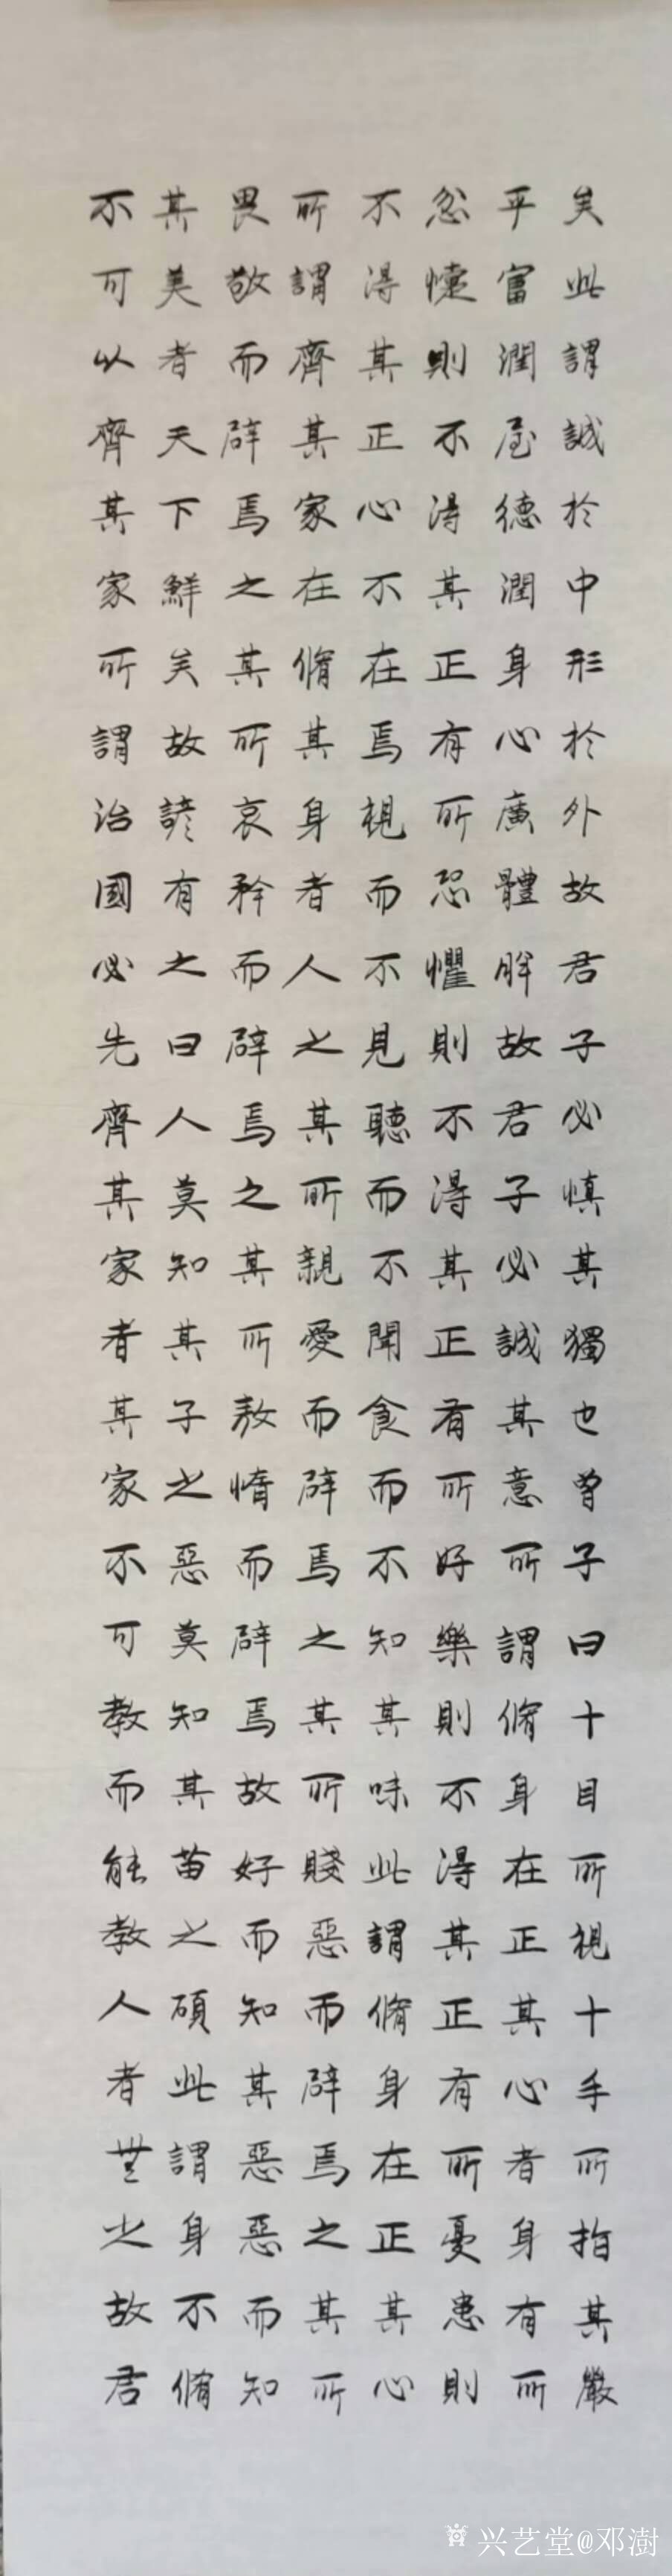 矣此謂誠於中形於外故君子必慎其獨也曾子曰十目所視十手所指其嚴
乎富潤屋德潤身心廣體胖故君子必誠其意所謂脩身在正其心者身有所
忿懥則不得其正有所恐懼則不得其正有所好樂則不得其正有所憂患則
不得其正心不在焉視而不見聽而不聞食而不知其味此謂脩身在正其心
所謂齊其家在脩其身者人之其所親愛而辟焉之其所賤惡而辟焉之其所
畏敬而辟焉之其所哀矜而辟焉之其所敖惰而辟焉故好而知其惡惡而知
其美者天下鮮矣故諺有之曰人莫知其子之惡莫知其苗之碩此謂身不脩
不可以齊其家所謂治國必先齊其家者其家不可教而能教人者無之故君
兴艺堂@邓澍